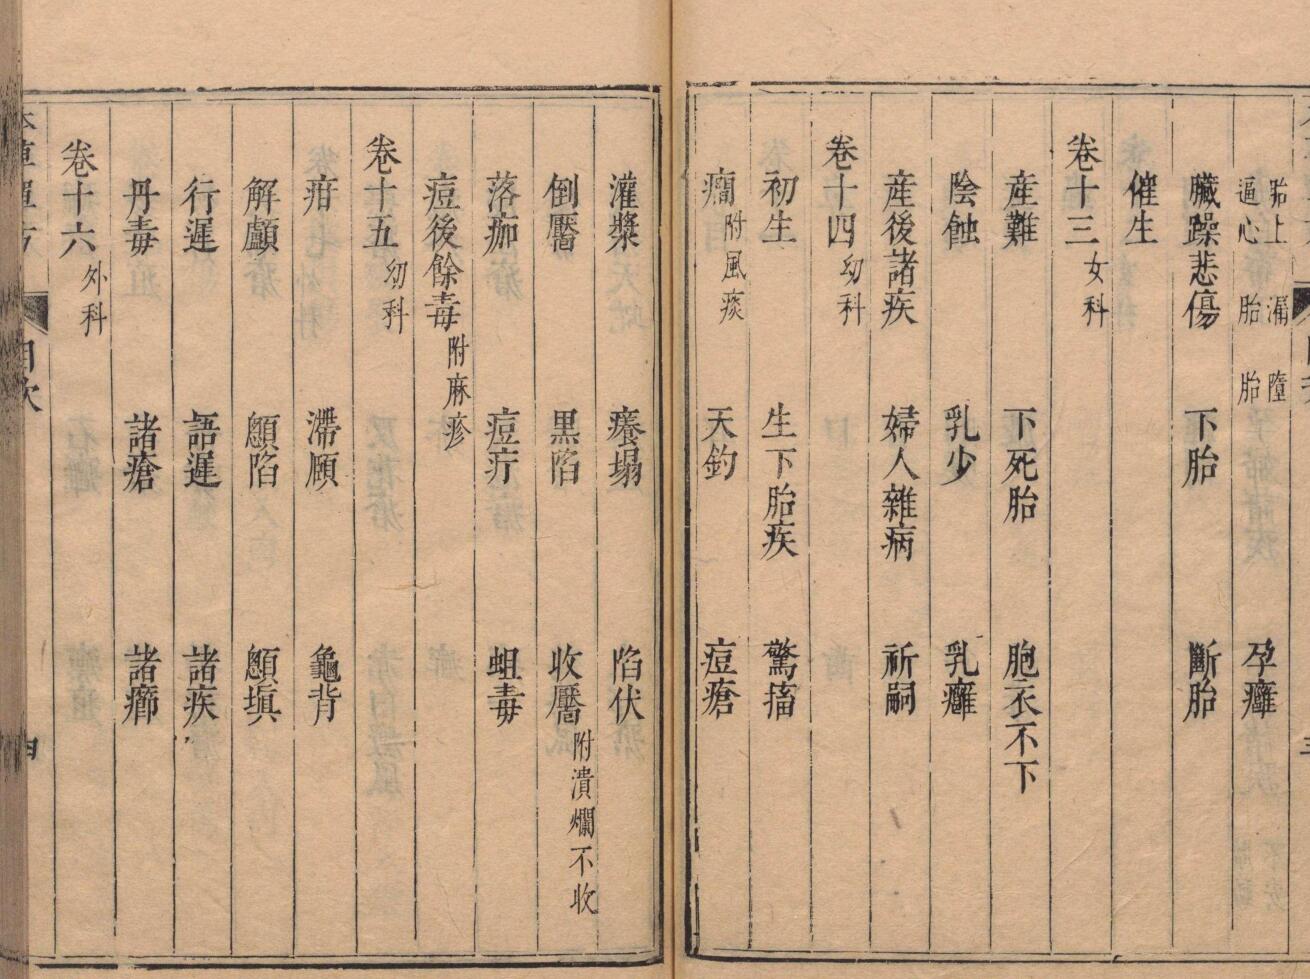 胎上逼心 漏胎 墮胎 孕癰
臟躁悲傷 下胎 斷胎
催生
卷十三 女科
產難 下死胎 胞衣不下
陰蝕 乳少 乳癰
產後諸疾 婦人雜病 祈嗣
卷十四 幼科
初生 生下胎疾 驚搐
癇 附風痰 天釣 痘瘡
灌漿 癢塌 陷伏
倒黶 黑陷 收黶 附潰爛不收
落痂 痘疔 蛆毒
痘後餘毒 附麻疹
卷十五 幼科
疳 滯頤 龜背
解顱 顖陷 顖塡
行遲 語遲 諸疾
丹毒 諸瘡 諸癤
卷十六 外科
目次
四